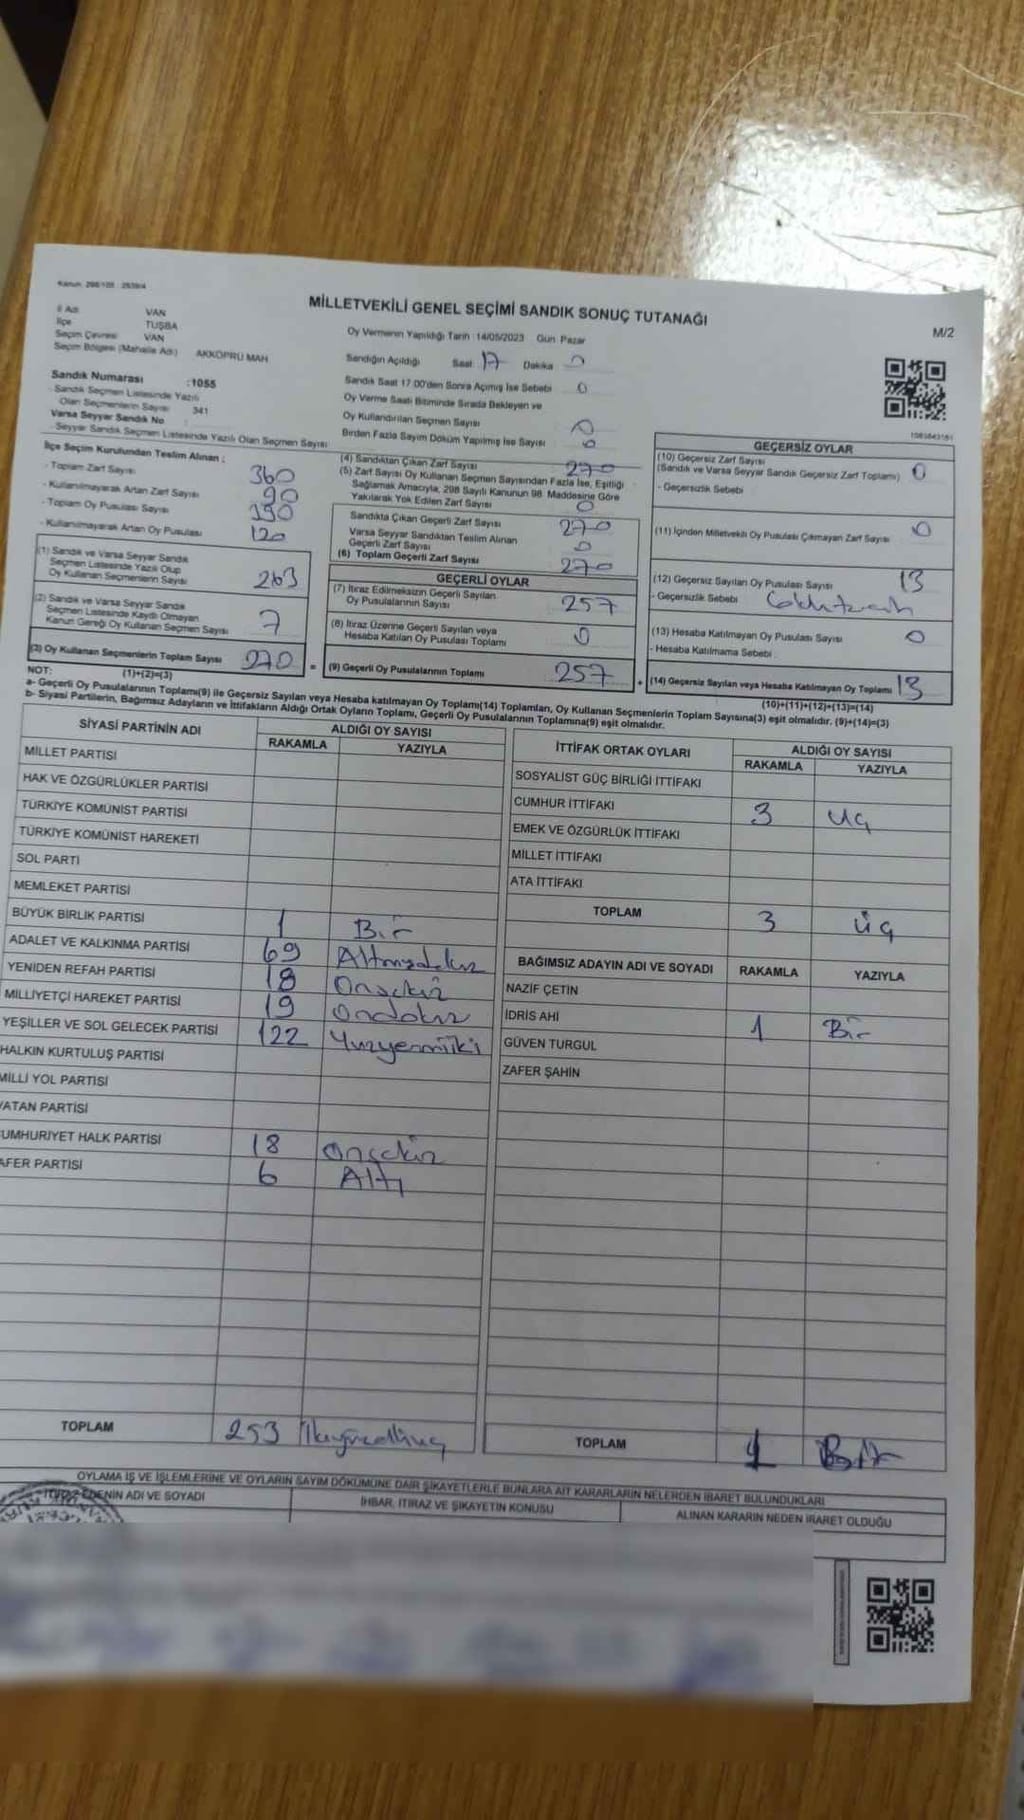 Kanun: 298/105 : 2839/4
MİLLETVEKİLİ GENEL SEÇİMİ SANDIK SONUÇ TUTANAĞI
M/2
İl Adı VAN
İlçe TUŞBA
Seçim Çevresi VAN
Seçim Bölgesi (Mahalle Adı) AKKÖPRÜ MAH
Sandık Numarası :1055
- Sandık Seçmen Listesinde Yazılı
Olan Seçmenlerin Sayısı 341
Varsa Seyyar Sandık No :
- Seyyar Sandık Seçmen Listesinde Yazılı Olan Seçmen Sayısı
Oy Vermenin Yapıldığı Tarih : 14/05/2023 Gün Pazar
Sandığın Açıldığı Saat 17 Dakika 0
Sandık Saat 17.00'den Sonra Açılmış İse Sebebi 0
Oy Verme Saati Bitiminde Sırada Bekleyen ve
Oy Kullandırılan Seçmen Sayısı 0
Birden Fazla Sayım Döküm Yapılmış İse Sayısı 0
İlçe Seçim Kurulundan Teslim Alınan :
- Toplam Zarf Sayısı 360
- Kullanılmayarak Artan Zarf Sayısı 90
- Toplam Oy Pusulası Sayısı 390
- Kullanılmayarak Artan Oy Pusulası 120
(1) Sandık ve Varsa Seyyar Sandık
Seçmen Listesinde Yazılı Olup
Oy Kullanan Seçmenlerin Sayısı 263
(2) Sandık ve Varsa Seyyar Sandık
Seçmen Listesinde Kaydı Olmayan
Kanun Gereği Oy Kullanan Seçmen Sayısı 7
(3) Oy Kullanan Seçmenlerin Toplam Sayısı 270 =
(1)+(2)=(3)
(4) Sandıktan Çıkan Zarf Sayısı 270
(5) Zarf Sayısı Oy Kullanan Seçmen Sayısından Fazla İse, Eşitliği
Sağlamak Amacıyla, 298 Sayılı Kanunun 98. Maddesine Göre
Yakılarak Yok Edilen Zarf Sayısı 0
Sandıkta Çıkan Geçerli Zarf Sayısı 270
Varsa Seyyar Sandıktan Teslim Alınan
Geçerli Zarf Sayısı 0
(6) Toplam Geçerli Zarf Sayısı 270
GEÇERLİ OYLAR
(7) İtiraz Edilmeksizin Geçerli Sayılan
Oy Pusulalarının Sayısı 257
(8) İtiraz Üzerine Geçerli Sayılan veya
Hesaba Katılan Oy Pusulası Toplamı 0
(9) Geçerli Oy Pusulalarının Toplamı 257 +
GEÇERSİZ OYLAR
(10) Geçersiz Zarf Sayısı
(Sandık ve Varsa Seyyar Sandık Geçersiz Zarf Toplamı) 0
- Geçersizlik Sebebi
(11) İçinden Milletvekili Oy Pusulası Çıkmayan Zarf Sayısı 0
(12) Geçersiz Sayılan Oy Pusulası Sayısı 13
- Geçersizlik Sebebi
(13) Hesaba Katılmayan Oy Pusulası Sayısı 0
- Hesaba Katılmama Sebebi :
(14) Geçersiz Sayılan veya Hesaba Katılmayan Oy Toplamı 13
(10)+(11)+(12)+(13)=(14)
NOT:
a- Geçerli Oy Pusulalarının Toplamı(9) ile Geçersiz Sayılan veya Hesaba katılmayan Oy Toplamı(14) Toplamları, Oy Kullanan Seçmenlerin Toplam Sayısına(3) eşit olmalıdır. (9)+(14)=(3)
b- Siyasi Partilerin, Bağımsız Adayların ve İttifakların Aldığı Ortak Oyların Toplamı, Geçerli Oy Pusulalarının Toplamına(9) eşit olmalıdır.
SİYASİ PARTİNİN ADI ALDIĞI OY SAYISI
RAKAMLA YAZIYLA
MİLLET PARTİSİ
HAK VE ÖZGÜRLÜKLER PARTİSİ
TÜRKİYE KOMÜNİST PARTİSİ
TÜRKİYE KOMÜNİST HAREKETİ
SOL PARTİ
MEMLEKET PARTİSİ
BÜYÜK BİRLİK PARTİSİ 1 Bir
ADALET VE KALKINMA PARTİSİ 69
YENİDEN REFAH PARTİSİ 18 Onsekiz
MİLLİYETÇİ HAREKET PARTİSİ 19 Ondokuz
YEŞİLLER VE SOL GELECEK PARTİSİ 122 Yuzyermiiki
HALKIN KURTULUŞ PARTİSİ
MİLLİ YOL PARTİSİ
VATAN PARTİSİ
CUMHURİYET HALK PARTİSİ 18 Onsekiz
ZAFER PARTİSİ 6 Altı
TOPLAM 253
İTTİFAK ORTAK OYLARI ALDIĞI OY SAYISI
RAKAMLA YAZIYLA
SOSYALİST GÜÇ BİRLİĞİ İTTİFAKI
CUMHUR İTTİFAKI 3 Uç
EMEK VE ÖZGÜRLÜK İTTİFAKI
MİLLET İTTİFAKI
ATA İTTİFAKI
TOPLAM 3 Üç
BAĞIMSIZ ADAYIN ADI VE SOYADI RAKAMLA YAZIYLA
NAZİF ÇETİN
İDRİS AHİ 1 Bir
GÜVEN TURGUL
ZAFER ŞAHİN
TOPLAM 1 Bir
OYLAMA İŞ VE İŞLEMLERİNE VE OYLARIN SAYIM DÖKÜMÜNE DAİR ŞİKAYETLERLE BUNLARA AİT KARARLARIN NELERDEN İBARET BULUNDUKLARI
İTİRAZ EDENİN ADI VE SOYADI
İHBAR, İTİRAZ VE ŞİKAYETİN KONUSU
ALINAN KARARIN NEDEN İBARET OLDUĞU